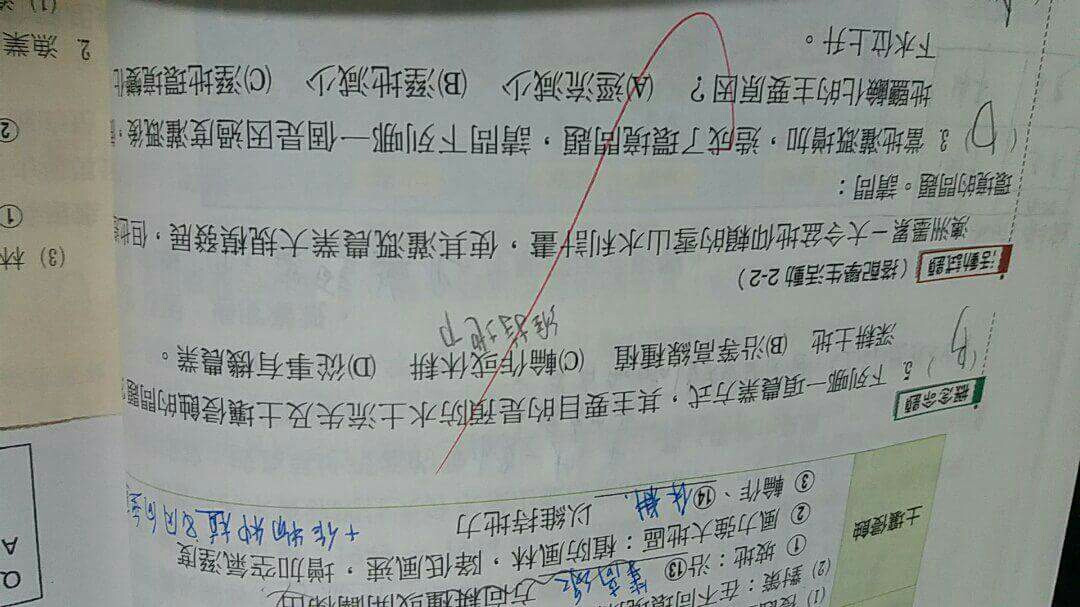 土壤侵蝕
(2) 對策：在不同環境
① 坡地：沿⑬等高線方向耕種或開闢梯田
② 風力強大地區：植防風林，降低風速，增加空氣溼度
③ 輪作、⑭休耕，以維持地力 + 作物種植
概念命題
(B) 5. 下列哪一項農業方式，其主要目的是預防水土流失及土壤侵蝕的問題？
深耕土地 (B)沿等高線種植 (C)輪作或休耕 (D)從事有機農業。
維持地力
活動試題 (搭配學生活動 2-2)
澳洲墨累－大令盆地仰賴的雪山水利計畫，使其灌溉農業大規模發展，但
環境的問題。請問：
(D) 3. 當地灌溉增加，造成了環境問題，請問下列哪一個是因過度灌溉後，
地鹽鹼化的主要原因？ (A)逕流減少 (B)溼地減少 (C)溼地環境變化
下水位上升。
Q
A
(3) 林
①
②
2. 漁業
(1)